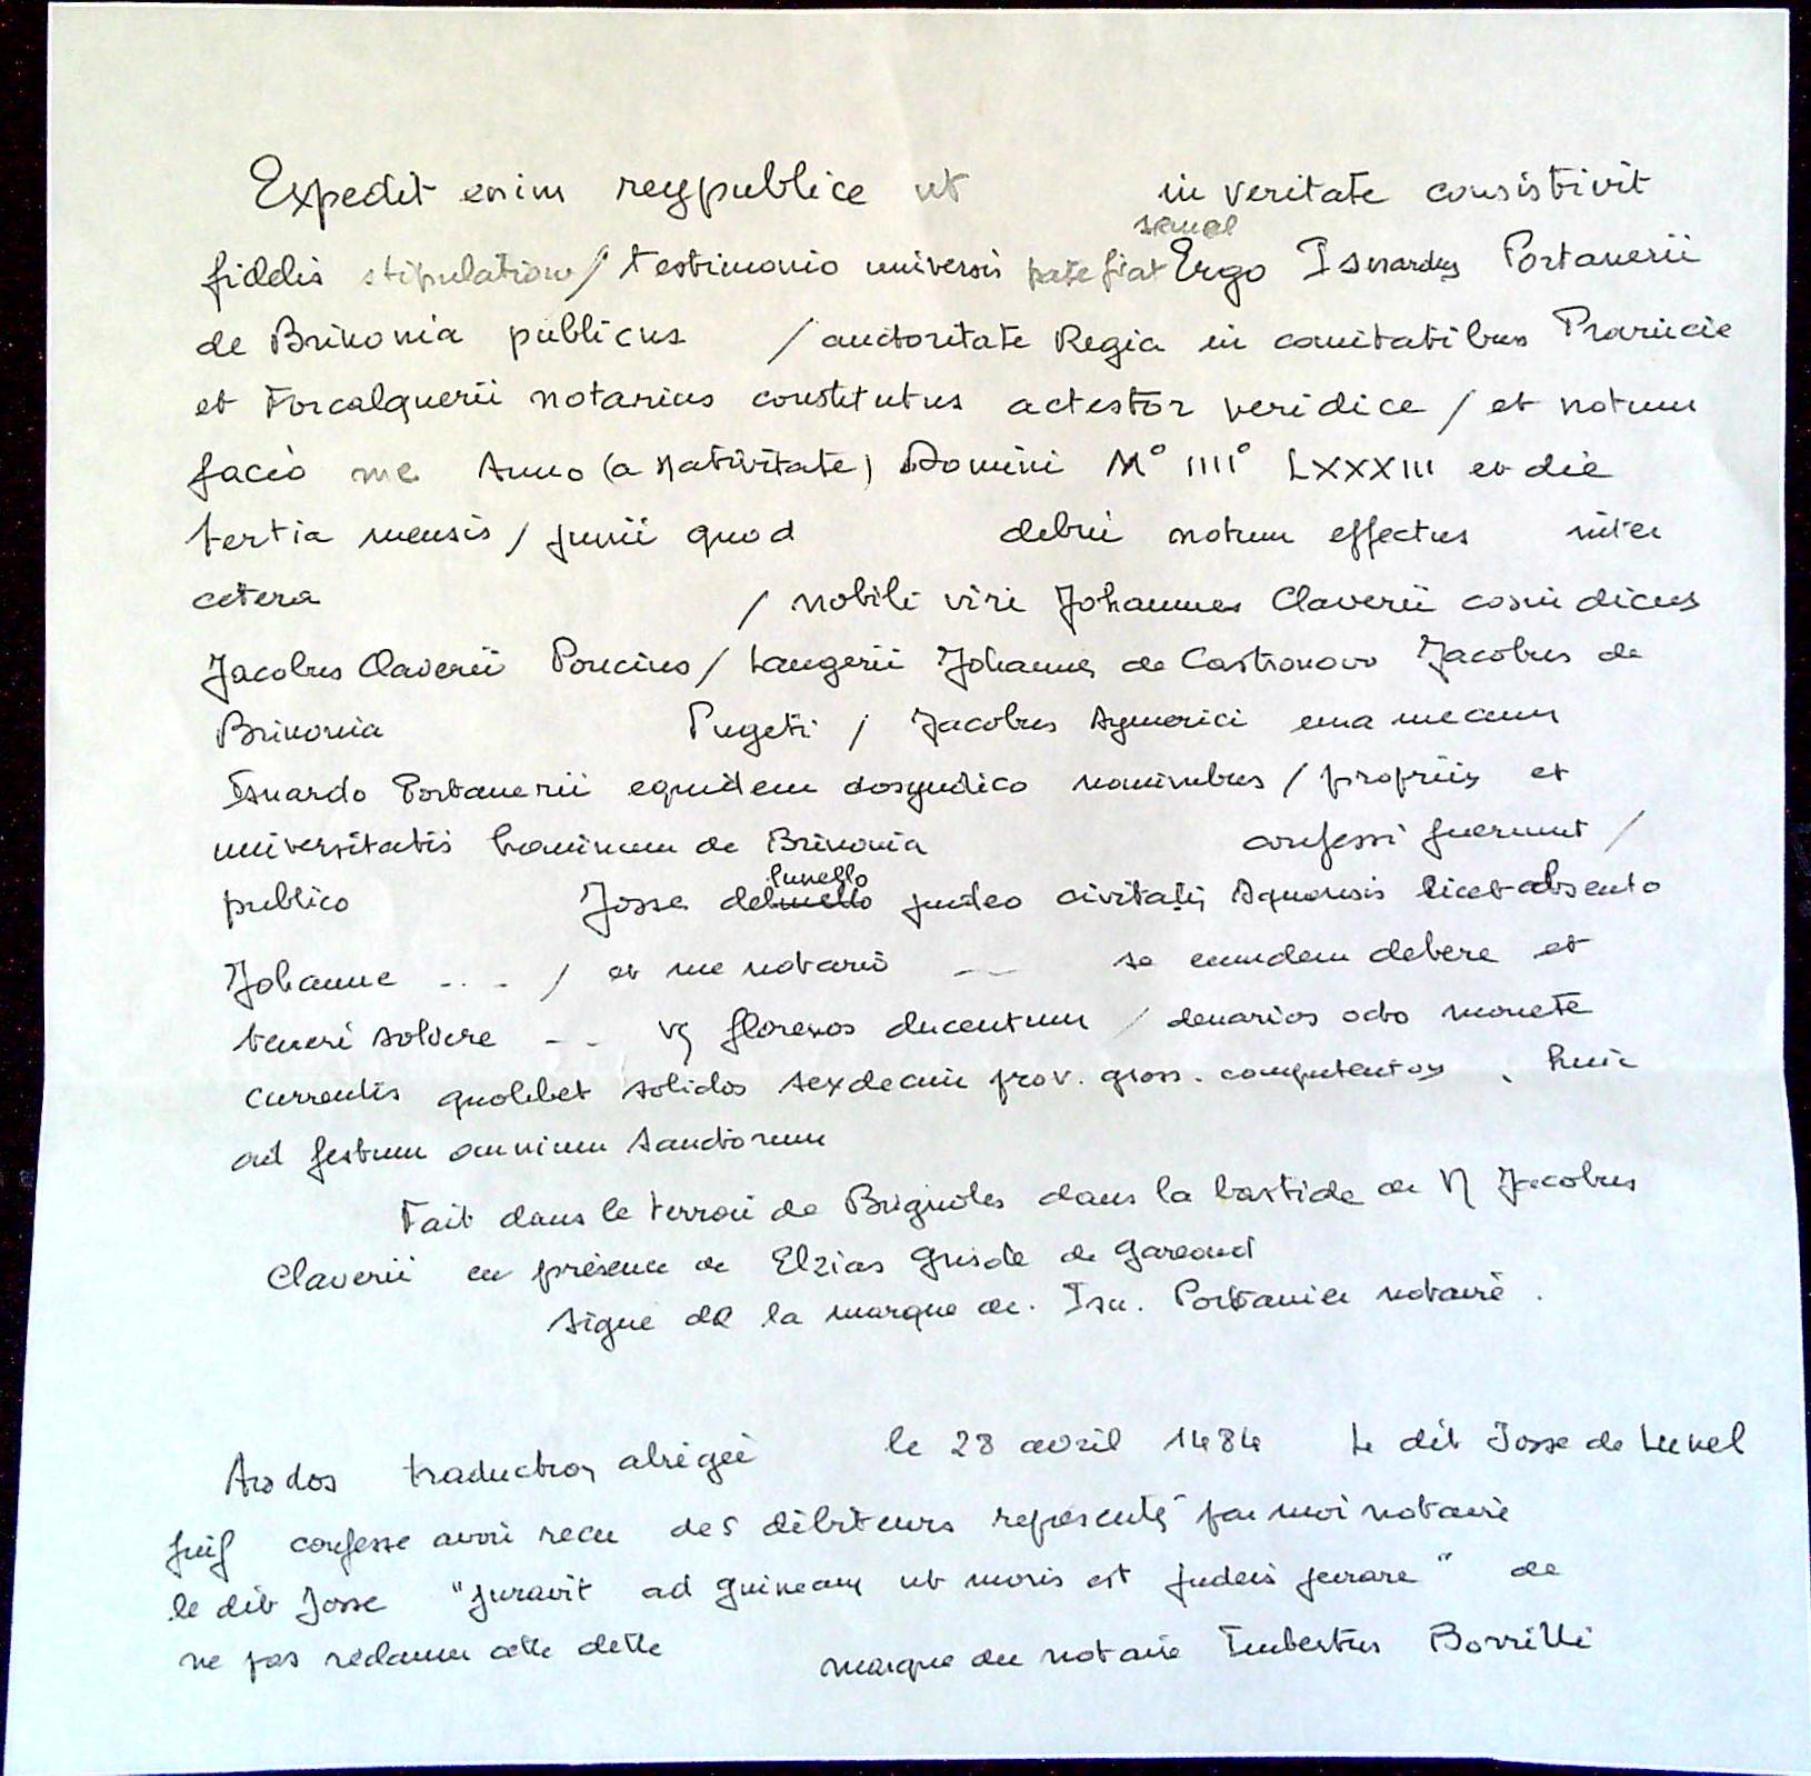 Expedit enim reypublice ut in veritate consistivit
semel
fidelis stipulation / testimonio universis patefiat Ergo Isnardus Portanerii
de Brinonia publicus / auctoritate Regia in comitatibus Provincie
et Forcalquerii notarius constitutus actestor veridice / et notum
facio me Anno (a Nativitate) Domini M° IIII° LXXXIII et die
tertia mensis / junii quod debui notum effectus inter
cetera / nobili viri Johannes Claverii cosindicus
Jacobus Claverii Poncius / Laugerii Johannes de Castronovo Jacobus de
Brinonia Pugeti / Jacobus Aymerici una mecum
Isnardo Portanerii equidem cosyndico nominibus / propriis et
universitatis hominum de Brinonia confessi fuerunt /
lunello
publico Josse de judeo civitatis Aquensis licet absento
Johanne ... / et me notario -- se eumdem debere et
teneri solvere -- vz florenos ducentum / denarios octo monete
currentis quolibet solidos sexdecim prov. gross. computentoy , huic
ad festum omnium sanctorum
Fait dans le terroir de Brignoles dans la bastide de N Jacobus
Claverii en présence de Elzias Grisole de Gareoud
signé de la marque de. Isn. Portanier notaire.
Au dos traduction abrégée le 28 avril 1484 Le dit Josse de Lunel
juif confesse avoir reçu des débiteurs représentés par moi notaire
le dit Josse "juravit ad guineam ut moris est judeis jurare" de
ne pas réclamer cette dette marque du notaire Imbertus Borrilli